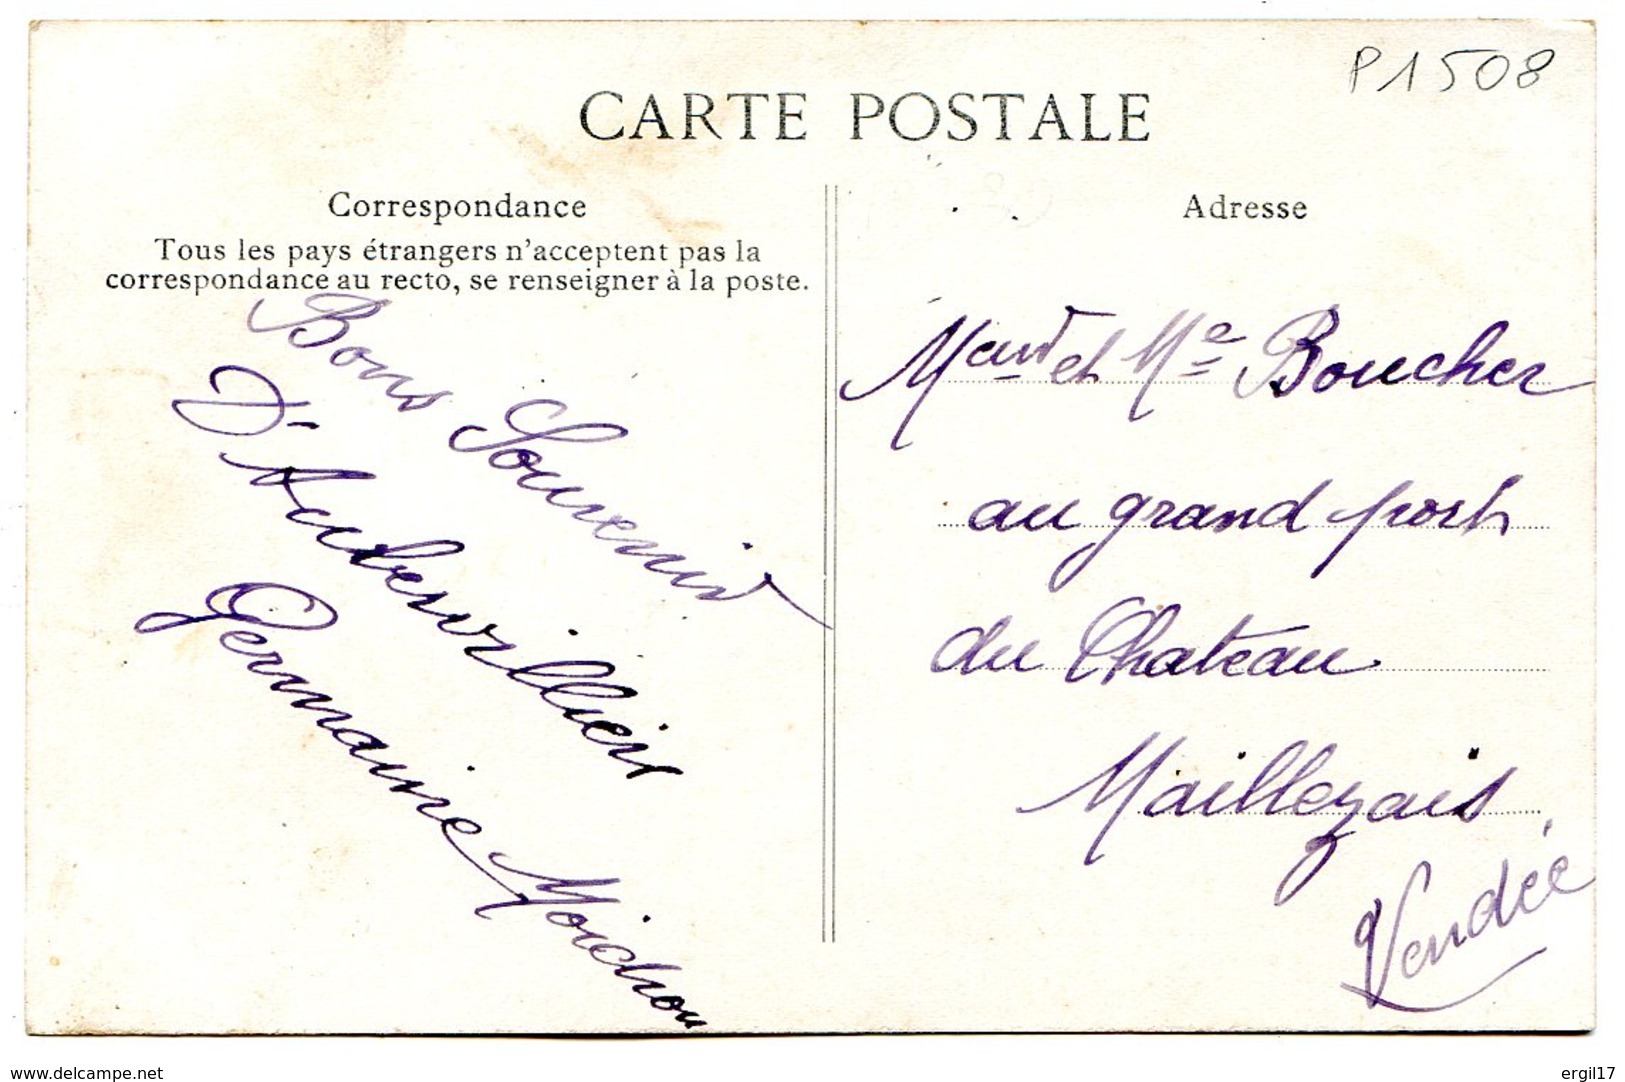 P1508
CARTE POSTALE
Correspondance
Tous les pays étrangers n'acceptent pas la
correspondance au recto, se renseigner à la poste.
Bons Souvenir
D'Aubervillier
Germaine Moichon
Adresse
et Me Boucher
au grand port
du Chateau
Maillezais
Vendée
www.delcampe.net
ergil17